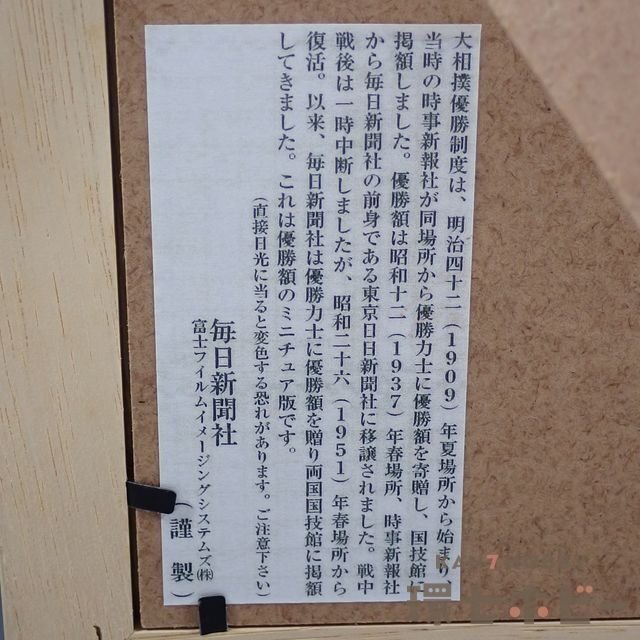 大相撲優勝制度は、明治四十二（1909）年夏場所から始まり
当時の時事新報社が同場所から優勝力士に優勝額を寄贈し、国技館に
掲額しました。優勝額は昭和十二（1937）年春場所、時事新報社
から毎日新聞社の前身である東京日日新聞社に移譲されました。戦中
戦後は一時中断しましたが、昭和二十六（1951）年春場所から
復活。以来、毎日新聞社は優勝力士に優勝額を贈り両国国技館に掲額
してきました。これは優勝額のミニチュア版です。
（直接日光に当ると変色する恐れがあります。ご注意下さい）
毎日新聞社
富士フイルムイメージングシステムズ㈱
（謹製）
環七ホビー